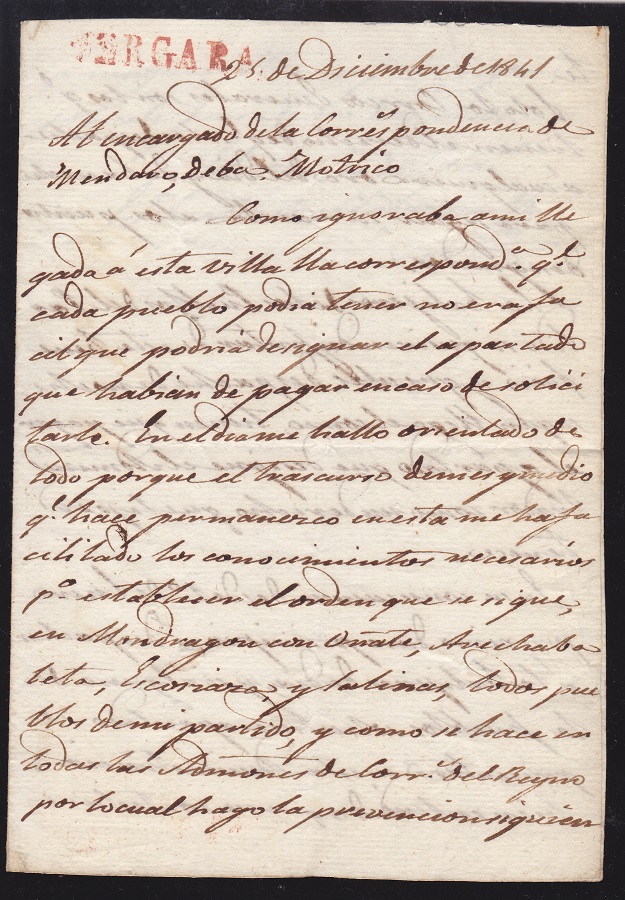 VERGARA
25. de Diciembre de 1841
Al encargado de la Correspondencia de
Mendaro, Deba. Motrico
Como ignoraba a mi lle
gada á esta villa lla correspond.ª q.e
cada pueblo podia tener no era fa
cil que podria designar el apartado
que habian de pagar en caso de solici
tarlo. En el dia me hallo orientado de
todo porque el trascurso de mes y medio
q.e hace permanezco en esta me ha fa
cilitado los conocimientos necesarios
p.ª establecer el orden que se sigue,
en Mondragon con Oñate, Arechaba
leta, Escoriaza, y Salinas, todos pue
blos de mi partido, y como se hace en
todas las Admones de Corr.s del Reyno
por lo cual hago la prevencion siguien